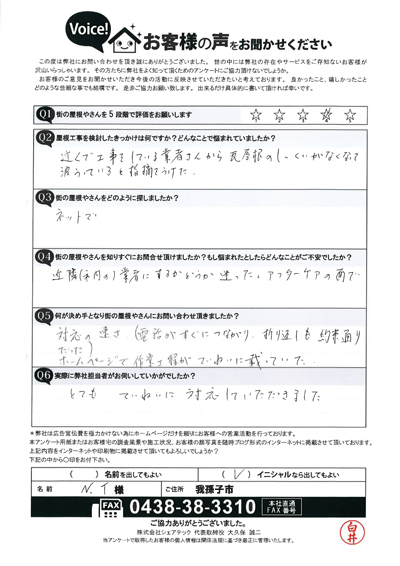 Voice!
お客様の声をお聞かせください
この度は弊社にお問い合わせを頂き誠にありがとうございました。世の中には弊社の存在やサービスをご存知ないお客様が
沢山いらっしゃいます。その方たちに弊社をよく知って頂くためのアンケートにご協力頂けないでしょうか。
お客様のご意見をお聞かせいただき今後の活動に反映させていただきたいと考えております。良かったこと、嬉しかったこと
どのような些細な事でも結構です。是非ご協力お願い致します。出来るだけ具体的に書いて頂ければ幸いです。
Q1 街の屋根やさんを5段階で評価をお願いします ☆ ☆ ☆ ☆ ☆
Q2 屋根工事を検討したきっかけは何ですか?どんなことで悩まれていましたか?
近くで工事をしている業者さんから瓦屋根のしっくいがなくなって
波うっていると指摘をうけた。
Q3 街の屋根やさんをどのように探しましたか?
ネットで
Q4 街の屋根やさんを知りすぐにお問合せ頂けましたか?もし悩まれたとしたらどんなことがご不安でしたか?
近隣(市内の)業者にするかどうか迷った。アフターケアの面で
Q5 何が決め手となり街の屋根やさんにお問い合わせ頂きましたか?
対応の速さ(電話がすぐにつながり、折り返しも約束通り
だった)
ホームページで作業工程がていねいに載っていた。
Q6 実際に弊社担当者がお伺いしていかがでしたか?
とても ていねいに 対応していただきました
*弊社は広告宣伝費を極力かけない為にホームページだけを頼りにお客様への営業活動を行っております。
本アンケート用紙またはお客様宅の調査風景や施工状況、お客様の顔写真を随時ブログ形式のインターネットに掲載させて頂いております。
上記内容をインターネットや印刷物に掲載させて頂いてもよろしいでしょうか?
下記の中から○印をお付下さい。
( )名前を出してもよい (✓)イニシャルなら出してもよい
名前 N.I 様 ご住所 我孫子市
FAX 0438-38-3310 本社直通 FAX番号
ご協力ありがとうございました。
株式会社シェアテック 代表取締役 大久保 誠二
当アンケートで取得したお客様の個人情報は関係法規に基づき厳正に管理いたします。
白井